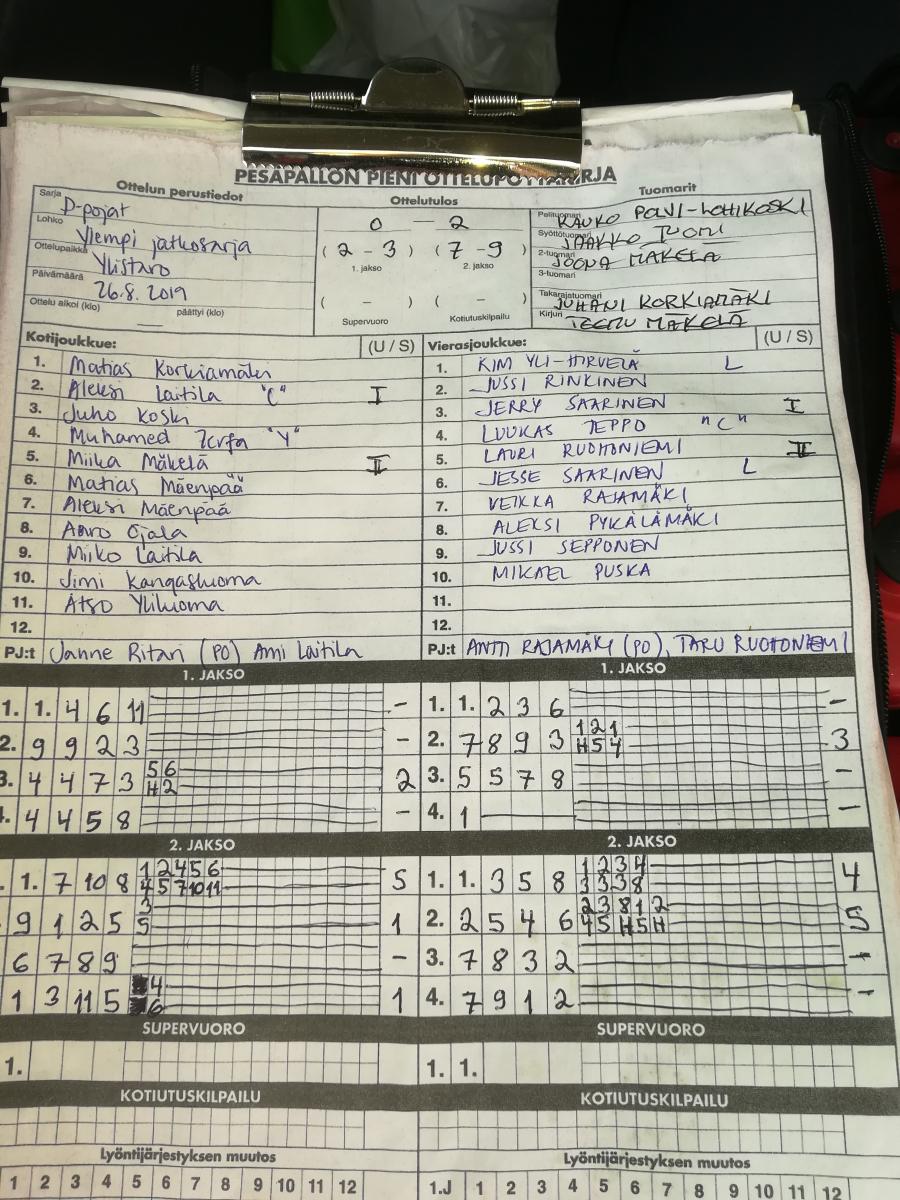 PESÄPALLON PIENI OTTELUPÖYTÄKIRJA
Ottelun perustiedot
Ottelutulos
Tuomarit
Sarja D-pojat
Lohko Ylempi jatkosarja
Ottelupaikka Ylistaro
Päivämäärä 26.8.2019
Ottelu alkoi (klo) — päättyi (klo)
0 — 2
( 2 - 3 ) ( 7 - 9 )
1. jakso 2. jakso
( - ) ( - )
Supervuoro Kotiutuskilpailu
Pelituomari KAUKO
Syöttötuomari JAAKKO TUOMI
2-tuomari JOONA MÄKELÄ
3-tuomari
Takarajatuomari JUHANI KORKIAMÄKI
Kirjuri TEEMU MÄKELÄ
Kotijoukkue: (U / S)
1. Matias Korkiamäki
2. Aleksi Laitila "C" I
3. Juho Koski
4. Muhamed "Y"
5. Miika Mäkelä II
6. Matias Mäenpää
7. Aleksi Mäenpää
8. Aaro Ojala
9. Miiko Laitila
10. Jimi Kangasluoma
11. Atso Yliluoma
12.
PJ:t Janne Ritari (PO) Ami Laitila
Vierasjoukkue: (U / S)
1. KIM YLI-HIRVELÄ L
2. JUSSI RINKINEN
3. JERRY SAARINEN I
4. LUUKAS TEPPO "C"
5. LAURI RUOHONIEMI II
6. JESSE SAARINEN L
7. VEIKKA RAJAMÄKI
8. ALEKSI PYKÄLÄMÄKI
9. JUSSI SEPPONEN
10. MIKAEL PUSKA
11.
12.
PJ:t ANTTI RAJAMÄKI (PO), TARU RUOHONIEMI
1. JAKSO
1. 1. 4 6 11 -
2. 9 9 2 3 -
3. 4 4 7 3 5 6 2
H 2
. 4 4 5 8 -
1. JAKSO
1. 1. 2 3 6 -
2. 7 8 9 3 1 2 1 3
H 5 4
3. 5 5 7 8 -
4. 1 -
2. JAKSO
. 1. 7 10 8 1 2 4 5 6 5
4 5 7 10 11
9 1 2 5 3 1
5
6 7 8 9 -
1 3 11 5 4 1
6
2. JAKSO
1. 1. 3 5 8 1 2 3 4 4
3 3 3 8
2. 2 5 4 6 2 3 8 1 2 5
4 5 H 5 H
3. 7 8 3 2 -
4. 7 9 1 2 -
SUPERVUORO
1.
SUPERVUORO
1. 1.
KOTIUTUSKILPAILU
KOTIUTUSKILPAILU
Lyöntijärjestyksen muutos
1 2 3 4 5 6 7 8 9 10 11 12
Lyöntijärjestyksen muutos
1.J 1 2 3 4 5 6 7 8 9 10 11 12